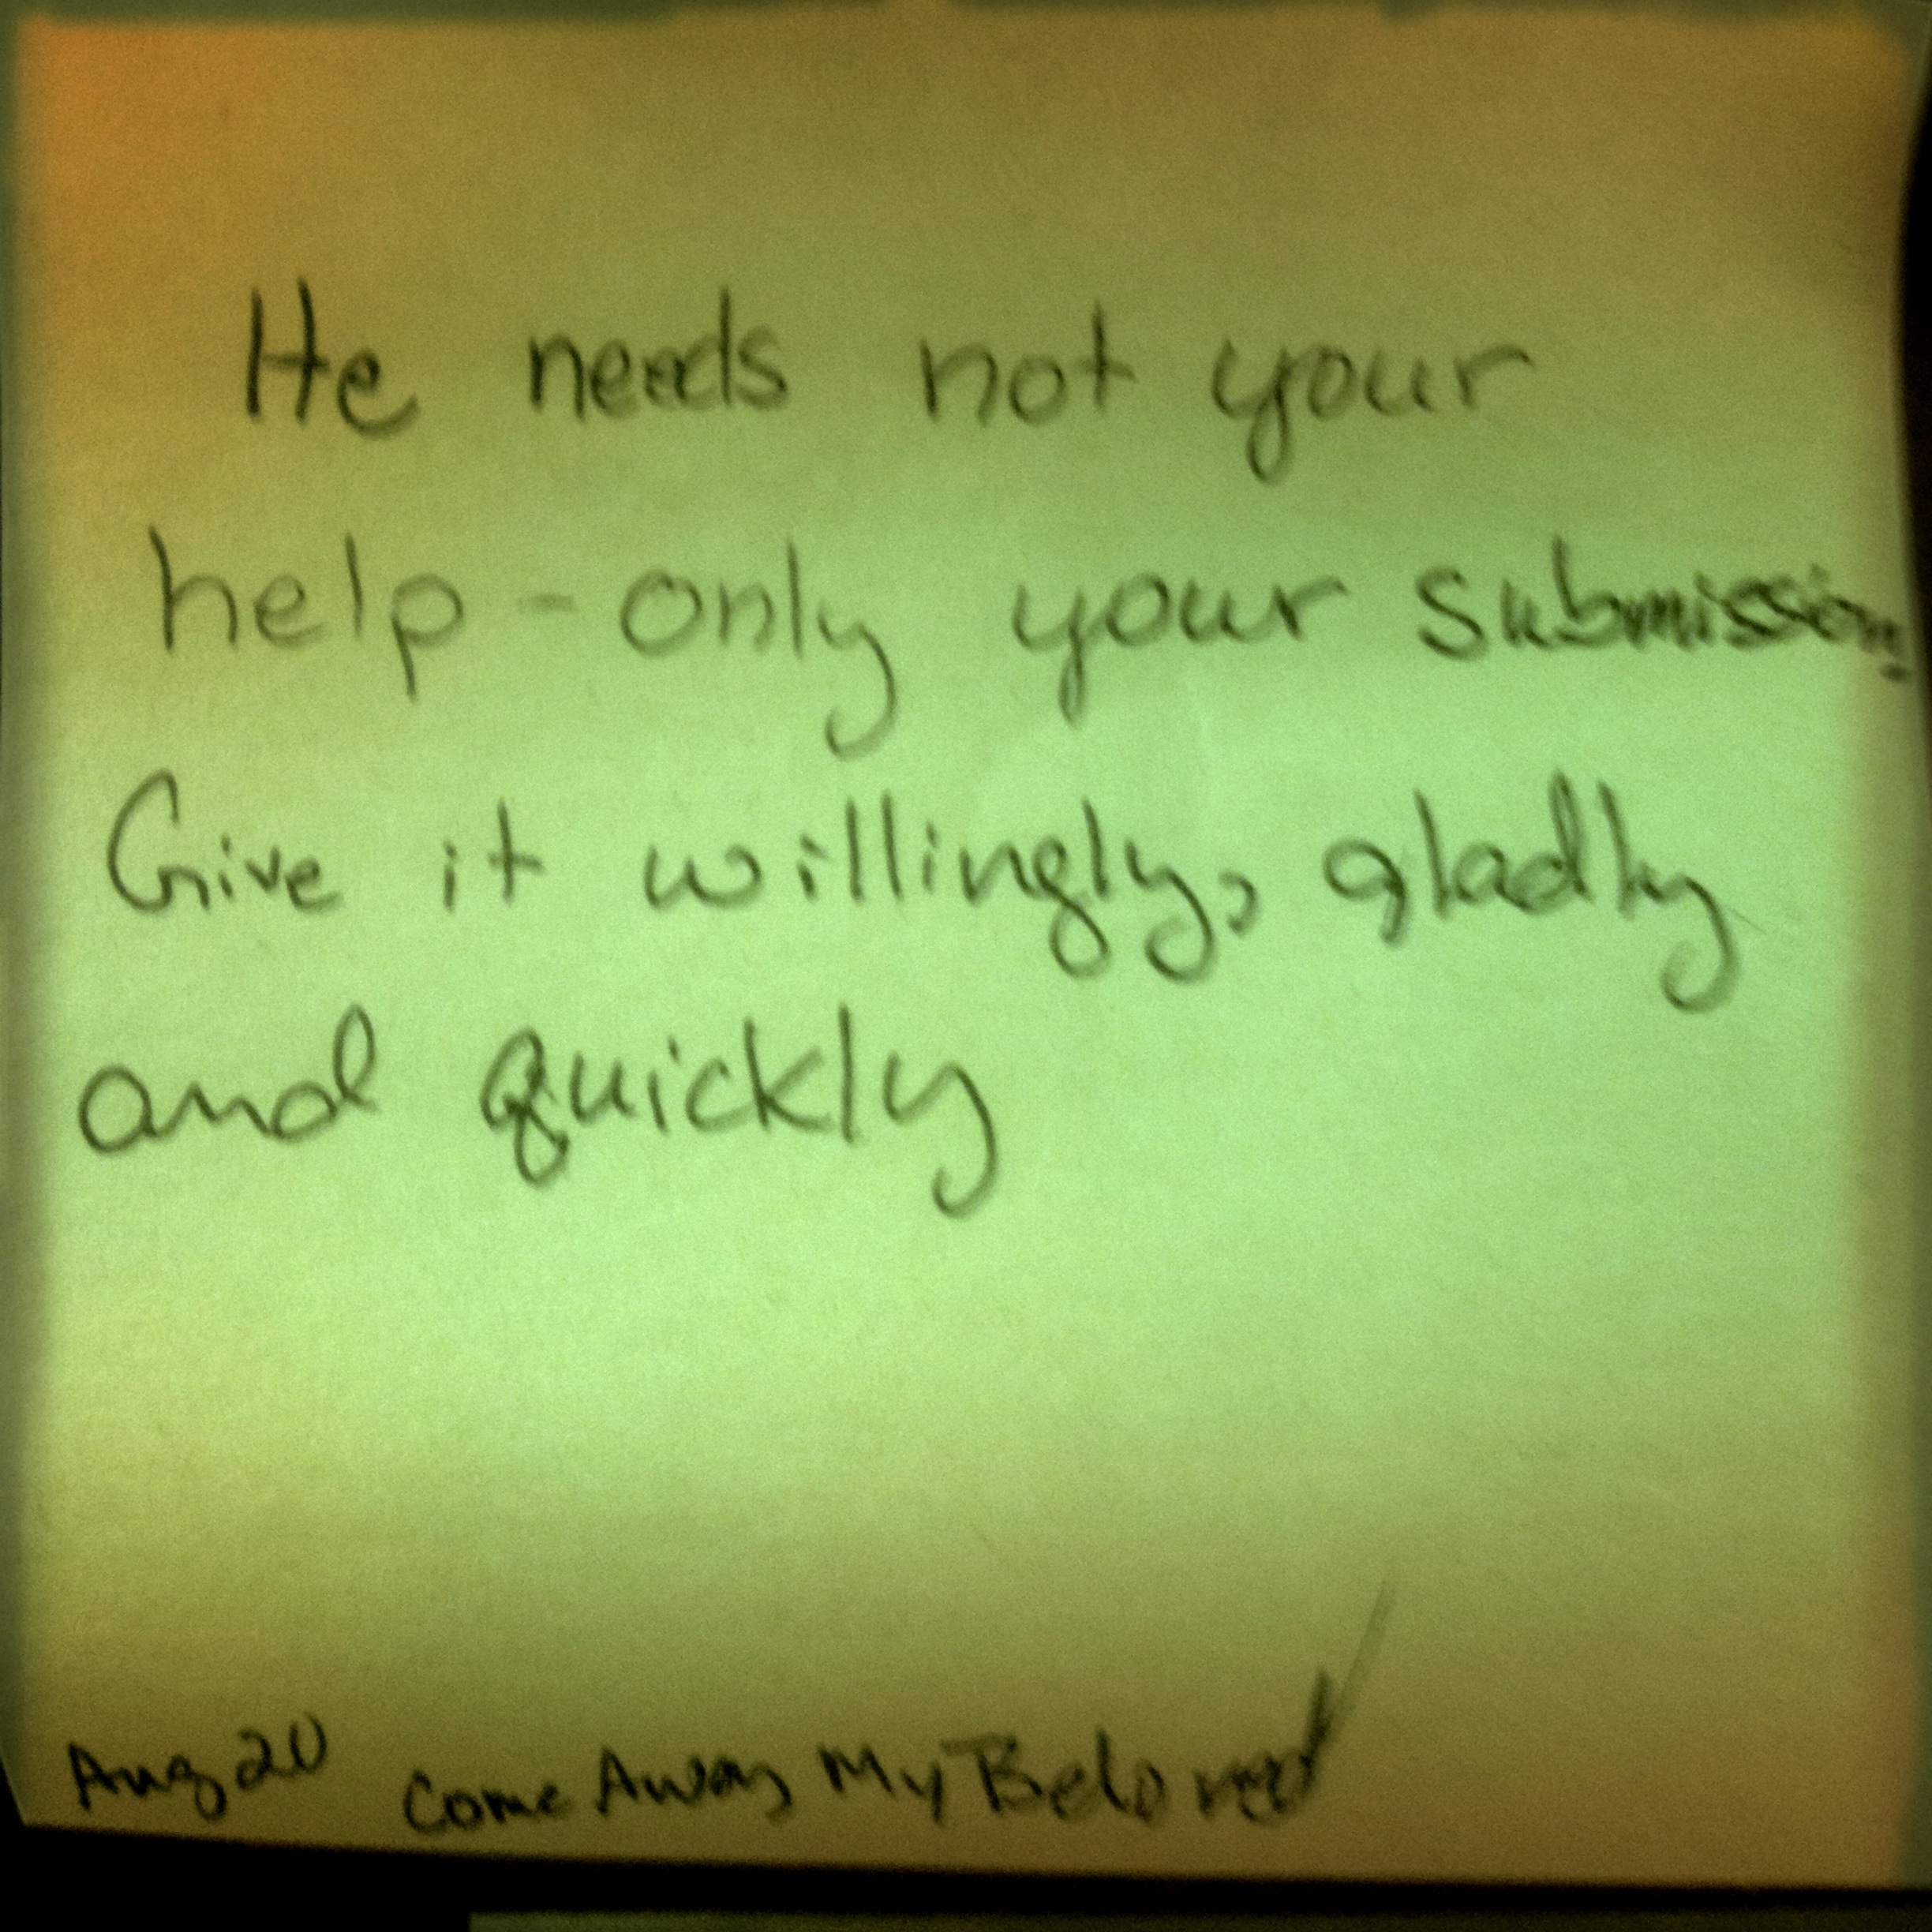 He needs not your
help - only your submission.
Give it willingly, gladly
and quickly
Aug 20 Come Away My Beloved